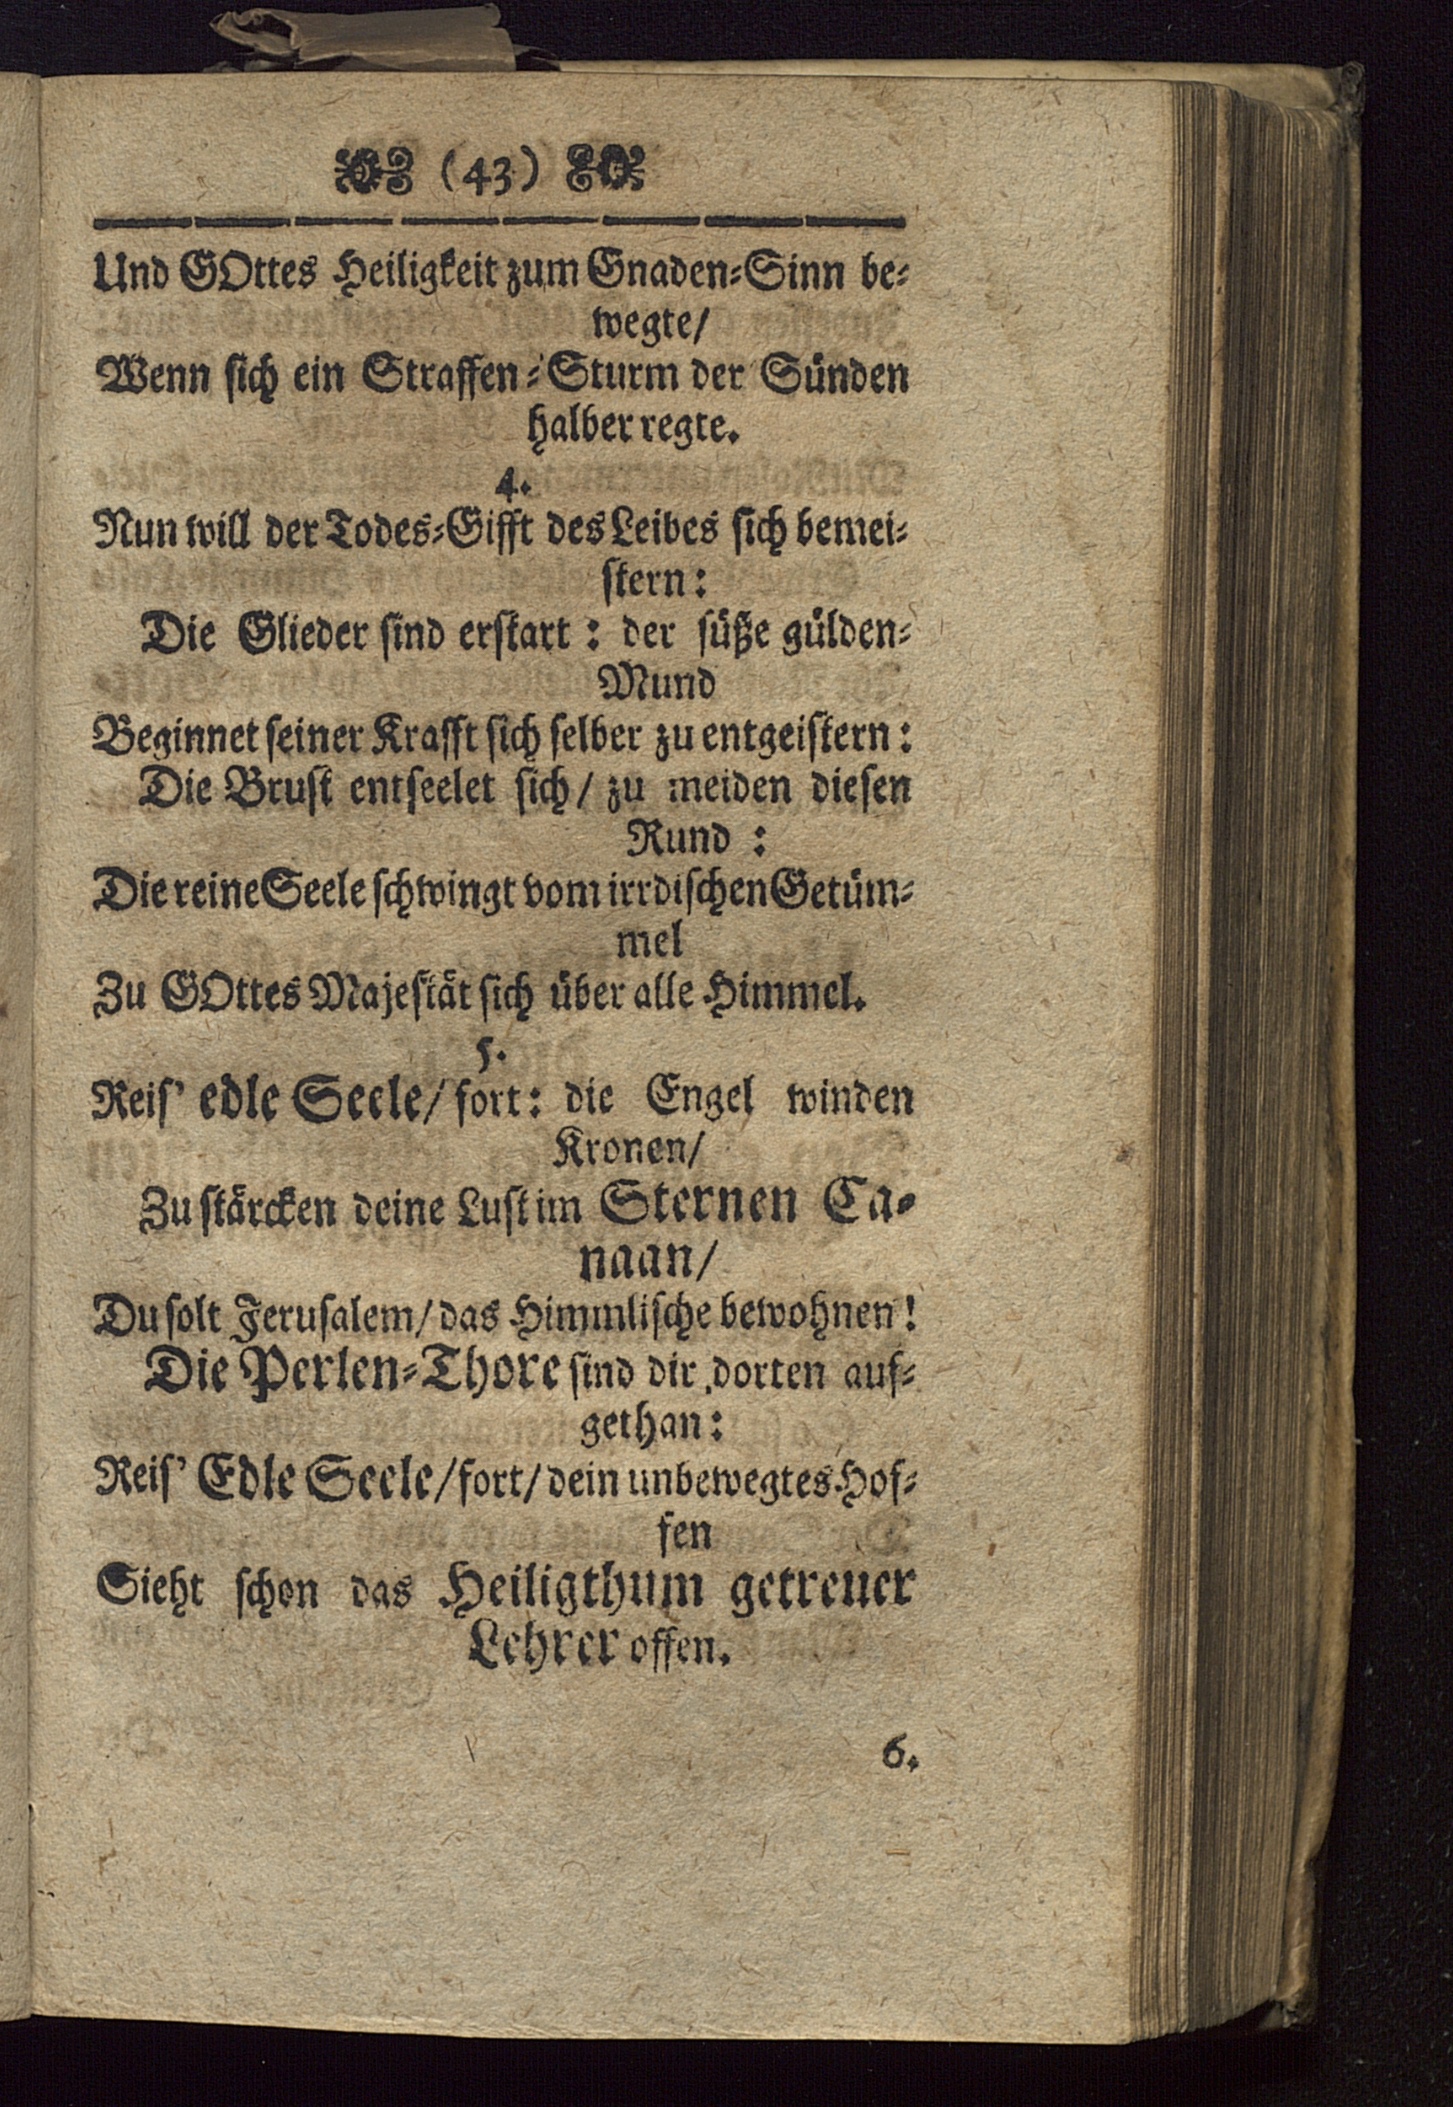 (43)
Und GOttes Heiligkeit zum Gnaden-Sinn be-
wegte/
Wenn sich ein Straffen-Sturm der Sünden
halber regte.
4.
Nun will der Todes-Gifft des Leibes sich bemei-
stern:
Die Glieder sind erstart: der süße gülden-
Mund
Beginnet seiner Krafft sich selber zu entgeistern:
Die Brust entseelet sich/ zu meiden diesen
Rund:
Die reine Seele schwingt vom irrdischen Getüm-
mel
Zu GOttes Majestät sich über alle Himmel.
5.
Reis’ edle Seele/ fort: die Engel winden
Kronen/
Zu stärcken deine Lust im Sternen Ca-
naan/
Du solt Jerusalem/ das Himmlische bewohnen!
Die Perlen-Thore sind dir dorten auf-
gethan:
Reis’ Edle Seele/ fort/ dein unbewegtes Hof-
fen
Sieht schon das Heiligthum getreuer
Lehrer offen.
6.